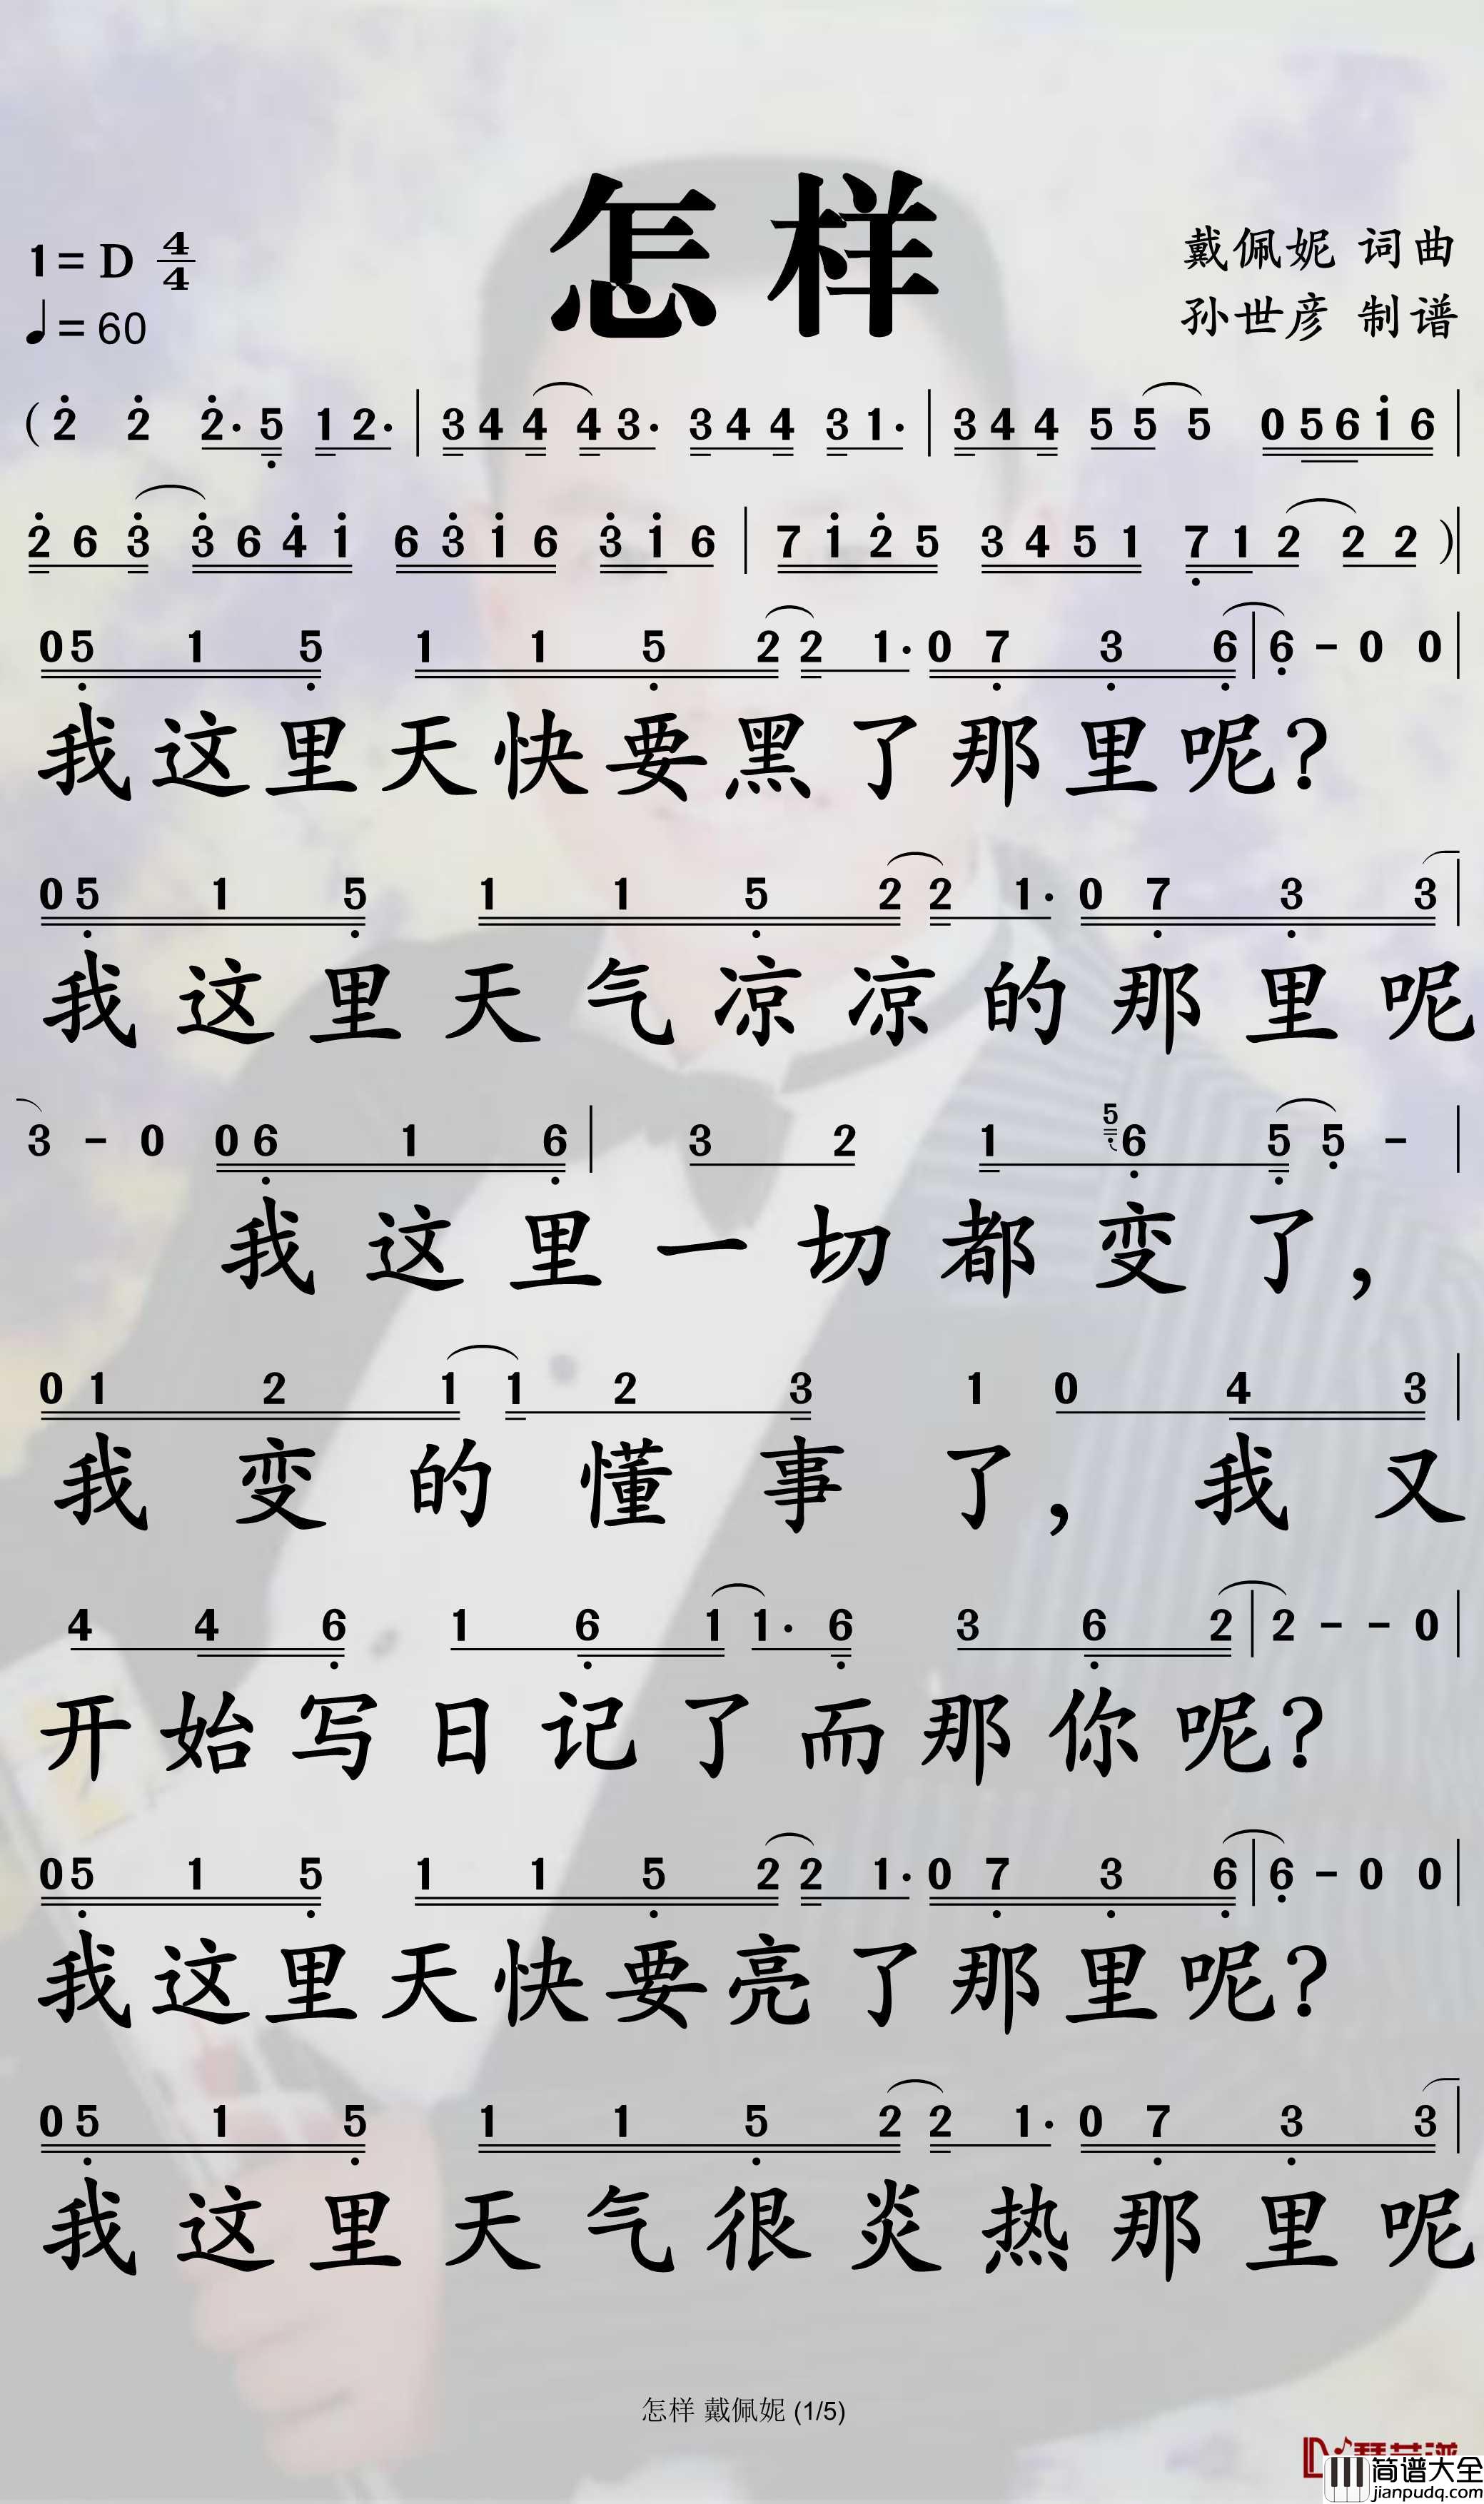 怎样
1=D 4/4
♩=60
戴佩妮 词曲
孙世彦 制谱
( 2 2 2· 5 1 2· | 3 4 4 4 3· 3 4 4 3 1· | 3 4 4 5 5 5 0 5 6 1 6 |
2 6 3 3 6 4 1 6 3 1 6 3 1 6 | 7 1 2 5 3 4 5 1 7 1 2 2 2 ) |
0 5 1 5 1 1 5 2 2 1· 0 7 3 6 | 6 - 0 0 |
我这里天快要黑了那里呢?
0 5 1 5 1 1 5 2 2 1· 0 7 3 3 |
我这里天气凉凉的那里呢
3 - 0 0 6 1 6 | 3 2 1 5 6 5 5 - |
我这里一切都变了,
0 1 2 1 1 2 3 1 0 4 3 |
我变的懂事了,我又
4 4 6 1 6 1 1· 6 3 6 2 | 2 - - 0 |
开始写日记了而那你呢?
0 5 1 5 1 1 5 2 2 1· 0 7 3 6 | 6 - 0 0 |
我这里天快要亮了那里呢?
0 5 1 5 1 1 5 2 2 1· 0 7 3 3 |
我这里天气很炎热那里呢
怎样 戴佩妮 (1/5)
简谱大全
jianpudq.com